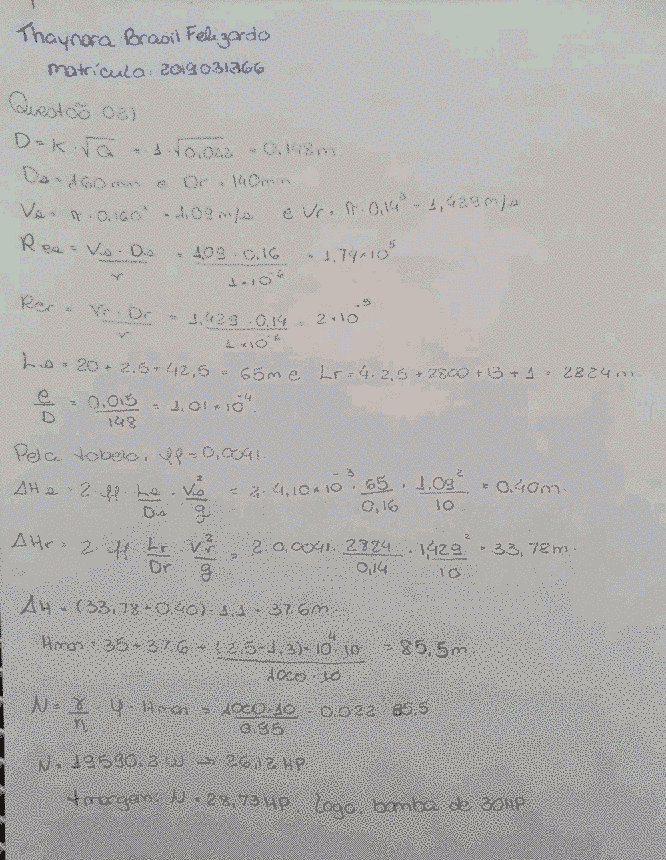 Thaynara Brasil Felizardo
matrícula: 2019031366
Questão 03)
D = K · √Q = 1 · √0,022 = 0,148m
Da = 160 mm e Dr = 140mm
Va = π · 0,160² = 1,09 m/s e Vr = π · 0,14² = 1,429 m/s
Rea = Va · Da / r = 1,09 · 0,16 / 1×10⁻⁶ = 1,74×10⁵
Rer = Vr · Dr / r = 1,429 · 0,14 / 1×10⁻⁶ = 2×10⁻⁵
La = 20 + 2,5 + 42,5 = 65m e Lr = 4 · 2,5 + 2800 + 13 + 1 = 2824 m
e/D = 0,015/148 = 1,01×10⁻⁴
Pela tabela, ff = 0,0041
ΔHa = 2 ff La/Da · Va²/g = 2 · 4,10×10⁻³ · 65/0,16 · 1,09²/10 = 0,40m
ΔHr = 2 · ff Lr/Dr · Vr²/g = 2 · 0,0041 · 2824/0,14 · 1,429²/10 = 33,78m
ΔH = (33,78 + 0,40) · 1,1 = 37,6m
Hman = 35 + 37,6 + (2,5 - 1,3) · 10⁴ · 10 / 1000 · 10 = 85,5m
N = γ/n Q · Hman = 1000 · 10 / 0,95 · 0,022 85,5
N = 19590,3 W → 26,12 HP
+margem: N = 28,73 HP Logo, bomba de 30HP